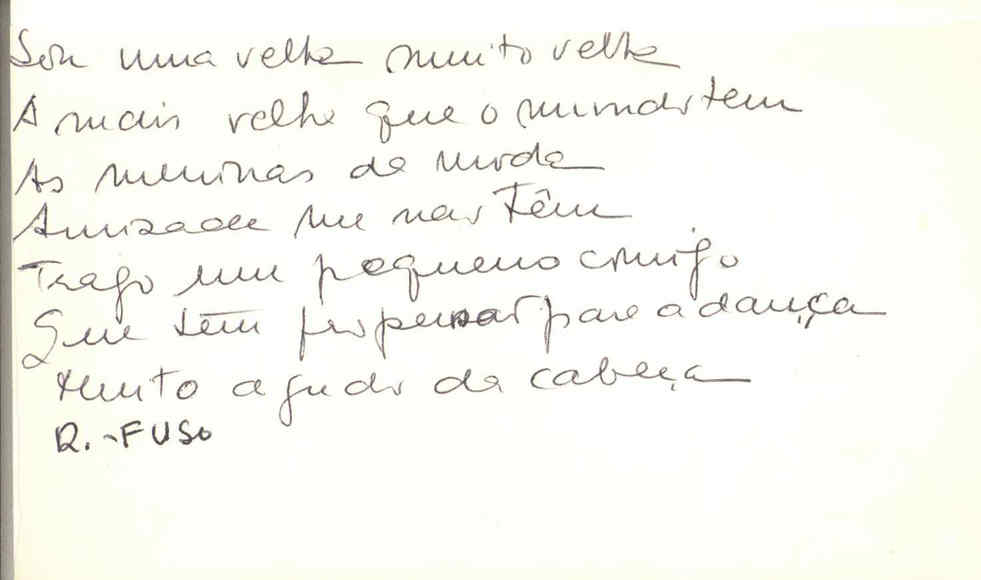 Sou uma velha muito velha
A mais velha que o mundo tem
As meninas da moda
Amizade me não têm
Trago um pequeno comigo
Que têm para a dança
Muito agudo da cabeça
R. - FUSO